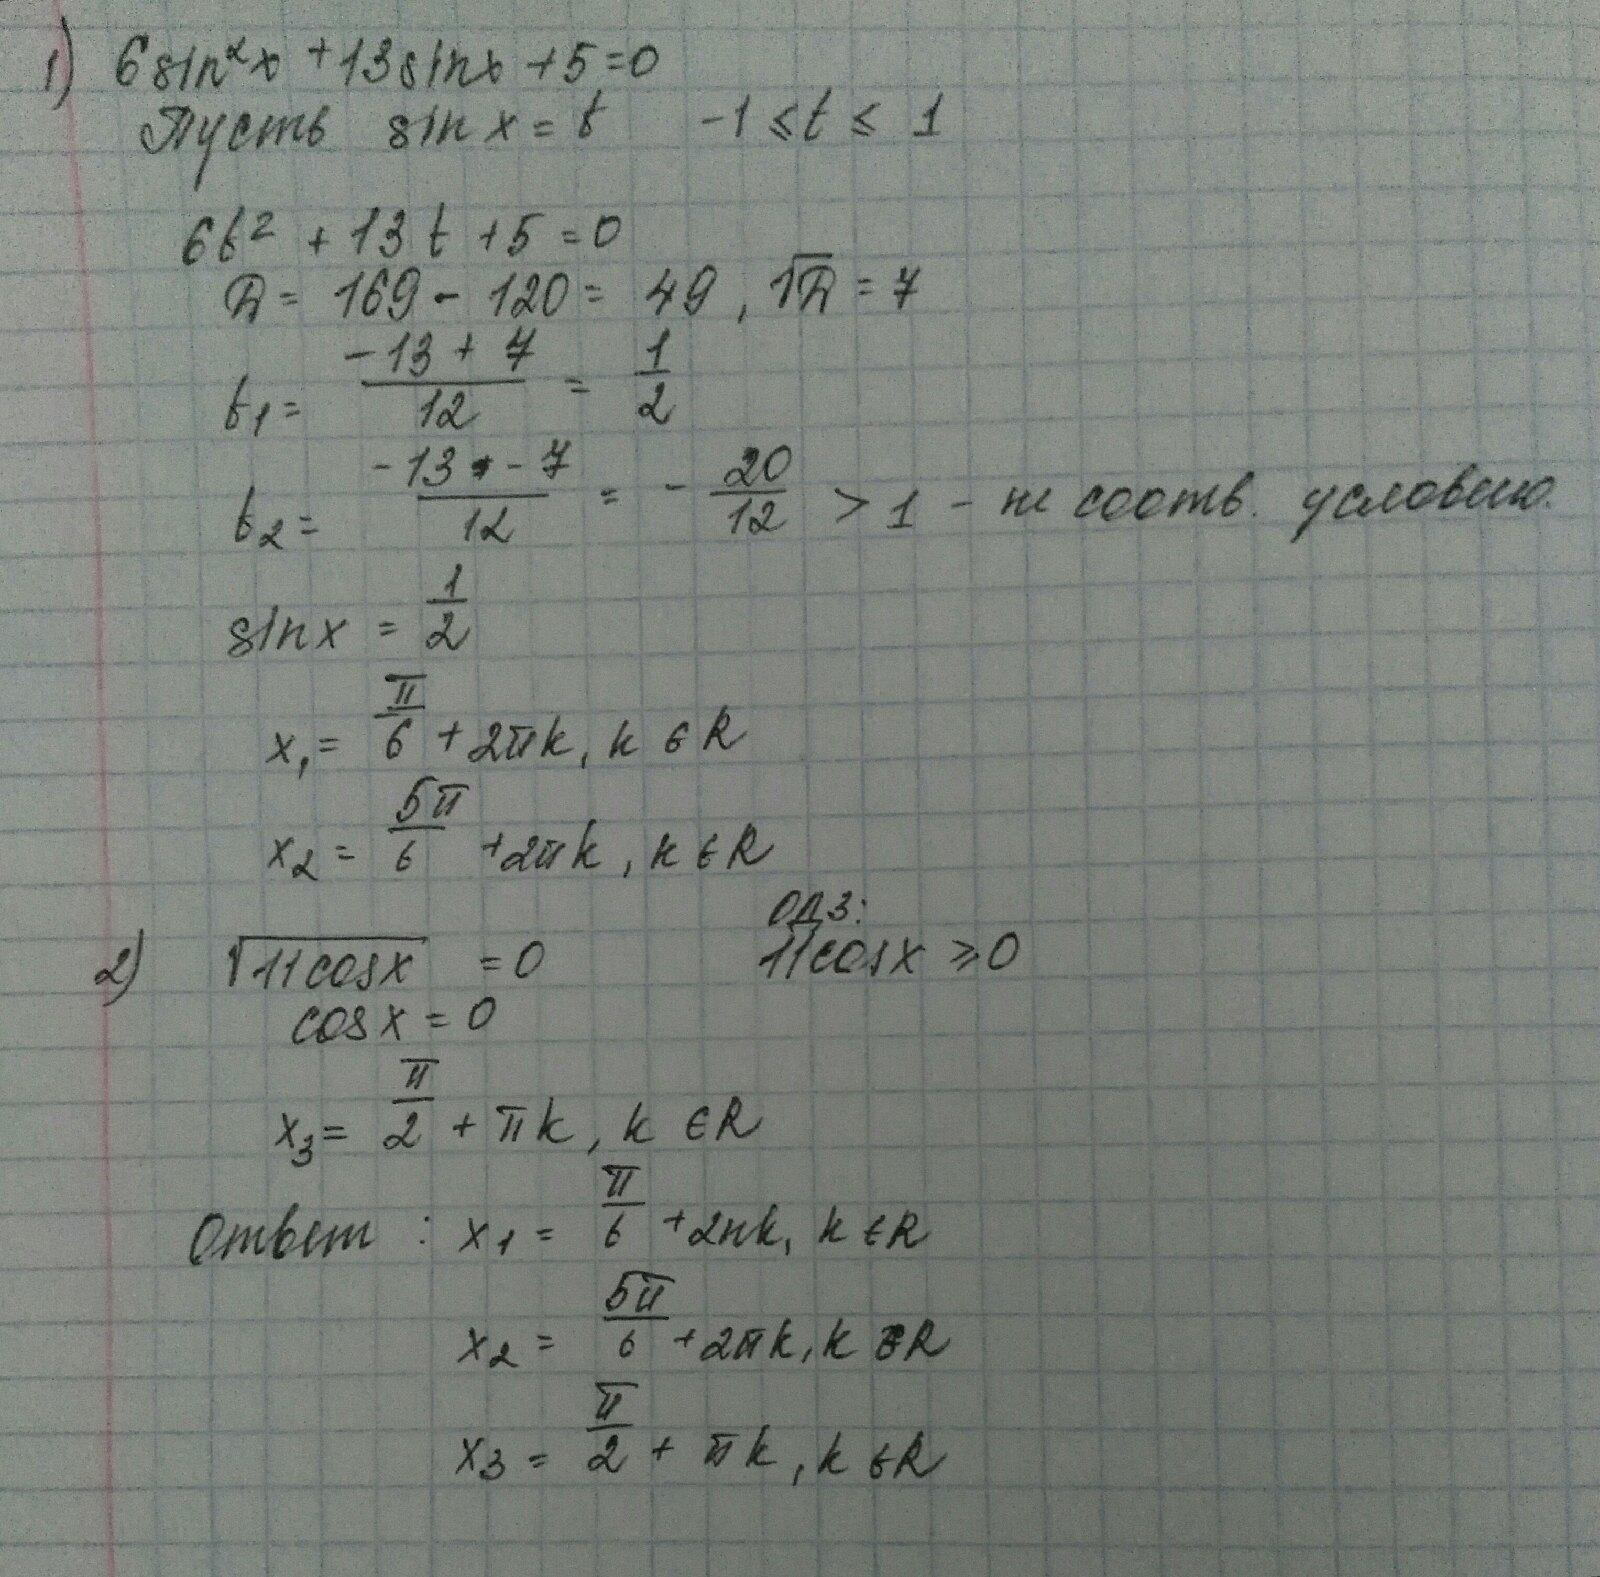 1) 6sin²x + 13sinx + 5 = 0
Пусть sin x = t -1 ≤ t ≤ 1
6t² + 13t + 5 = 0
Д = 169 - 120 = 49, √Д = 7
t₁ = (-13 + 7)/12 = 1/2
t₂ = (-13 - 7)/12 = -20/12 > 1 - не соотв. условию.
sinx = 1/2
x₁ = π/6 + 2πk, k ∈ R
x₂ = 5π/6 + 2πk, k ∈ R
ОДЗ:
2) √(11cosx) = 0 11cosx ≥ 0
cosx = 0
x₃ = π/2 + πk, k ∈ R
Ответ: x₁ = π/6 + 2πk, k ∈ R
x₂ = 5π/6 + 2πk, k ∈ R
x₃ = π/2 + πk, k ∈ R